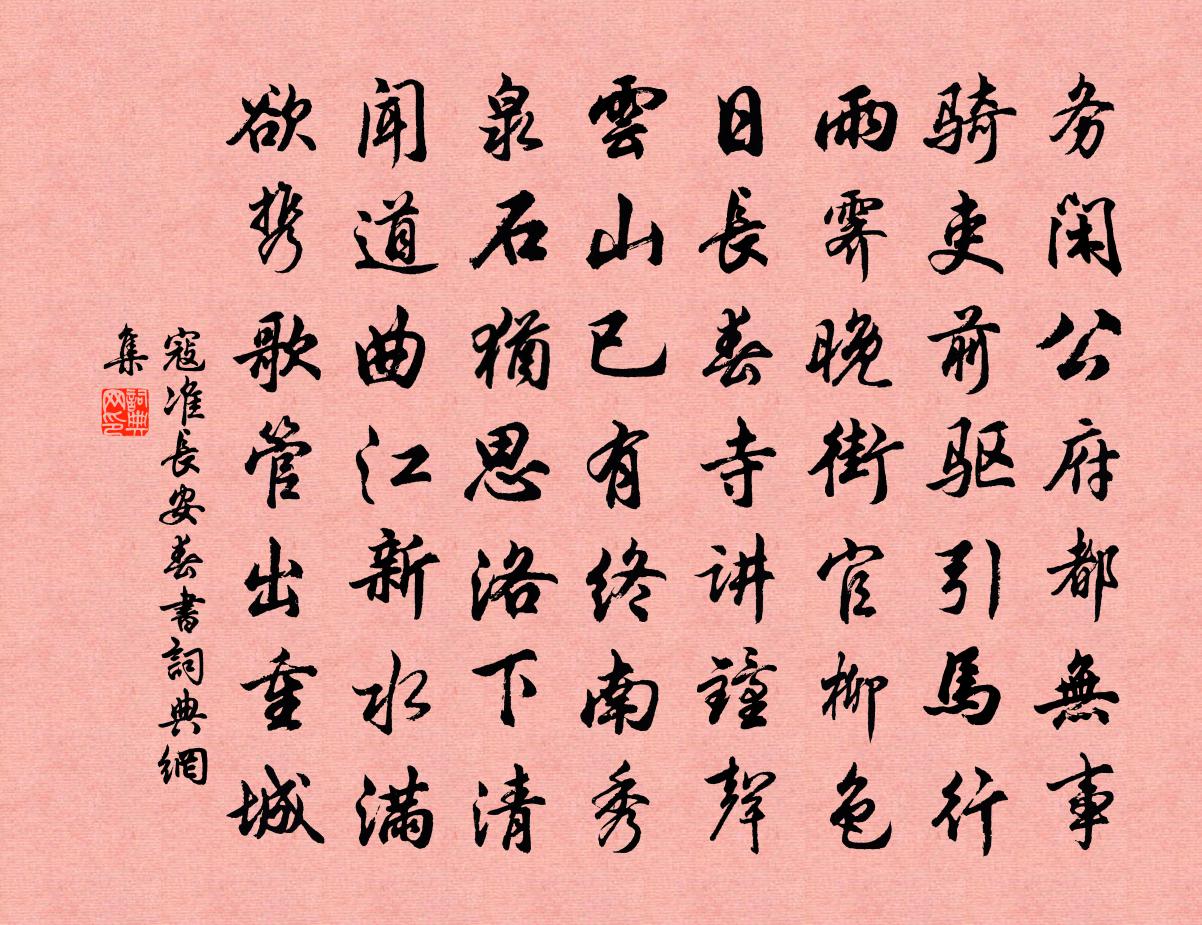 务闲公府都無事
骑吏前驱引馬行
雨霁晚街官柳色
日長春寺讲鐘聲
雲山已有终南秀
泉石猶思洛下清
闻道曲江新水满
欲携歌管出重城
寇准長安春書詞典網
集
詞典
网印